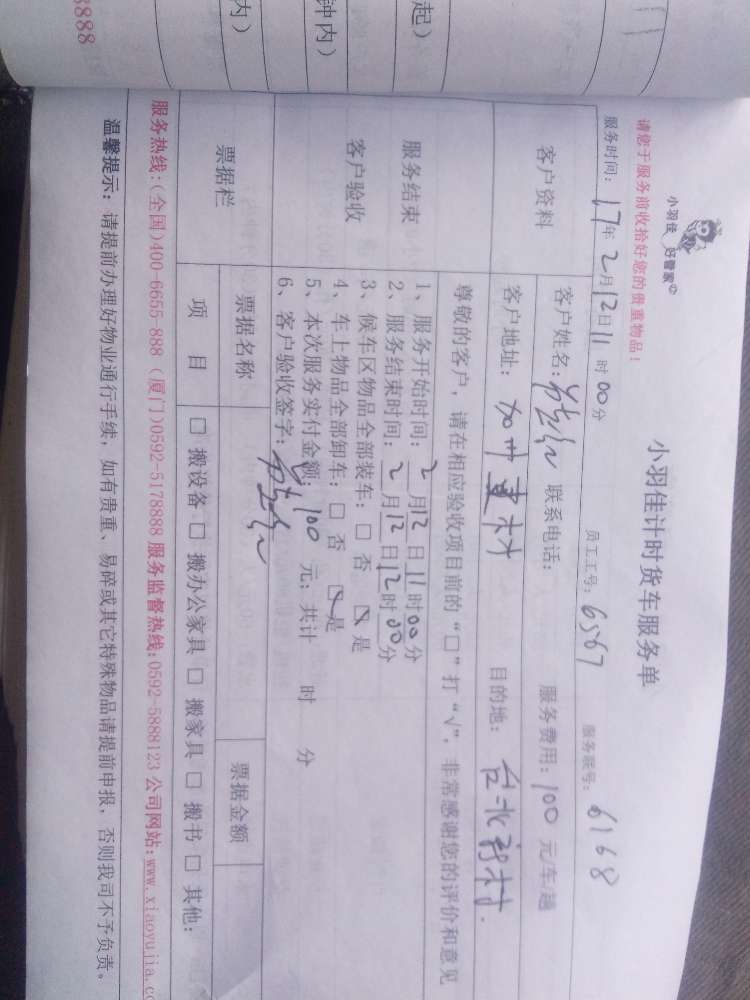 8888
起）
钟内）
内）
请您于服务前收拾好您的贵重物品！
小羽佳 好管家
小羽佳计时货车服务单
服务时间：17年2月12日11时00分 员工工号：6567 服务联号：6168
客户资料
客户姓名： 联系电话： 服务费用：100 元/车/趟
客户地址：加州建材 目的地：台北新村.
尊敬的客户，请在相应验收项目前的“□”打“√”，非常感谢您的评价和意见
服务结束
客户验收
1、服务开始时间：2月12日11时00分
2、服务结束时间：2月12日12时00分
3、候车区物品全部装车：□ 否 ☑ 是
4、车上物品全部卸车：□ 否 ☑ 是
5、本次服务实付金额：100 元；共计 时 分
6、客户验收签字：
票据栏
票据名称 票据金额
项 目 □ 搬设备 □ 搬办公家具 □ 搬家具 □ 搬书 □ 其他：
服务热线：(全国)400-6655-888 (厦门)0592-5178888 服务监督热线：0592-5888123 公司网站：www.xiaoyujia.co
温馨提示：请提前办理好物业通行手续，如有贵重、易碎或其它特殊物品请提前申报，否则我司不予负责。